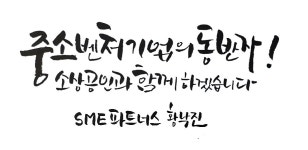 중소벤처기업의 동반자!
소상공인과 함께 하겠습니다
SME 파트너스 황낙진